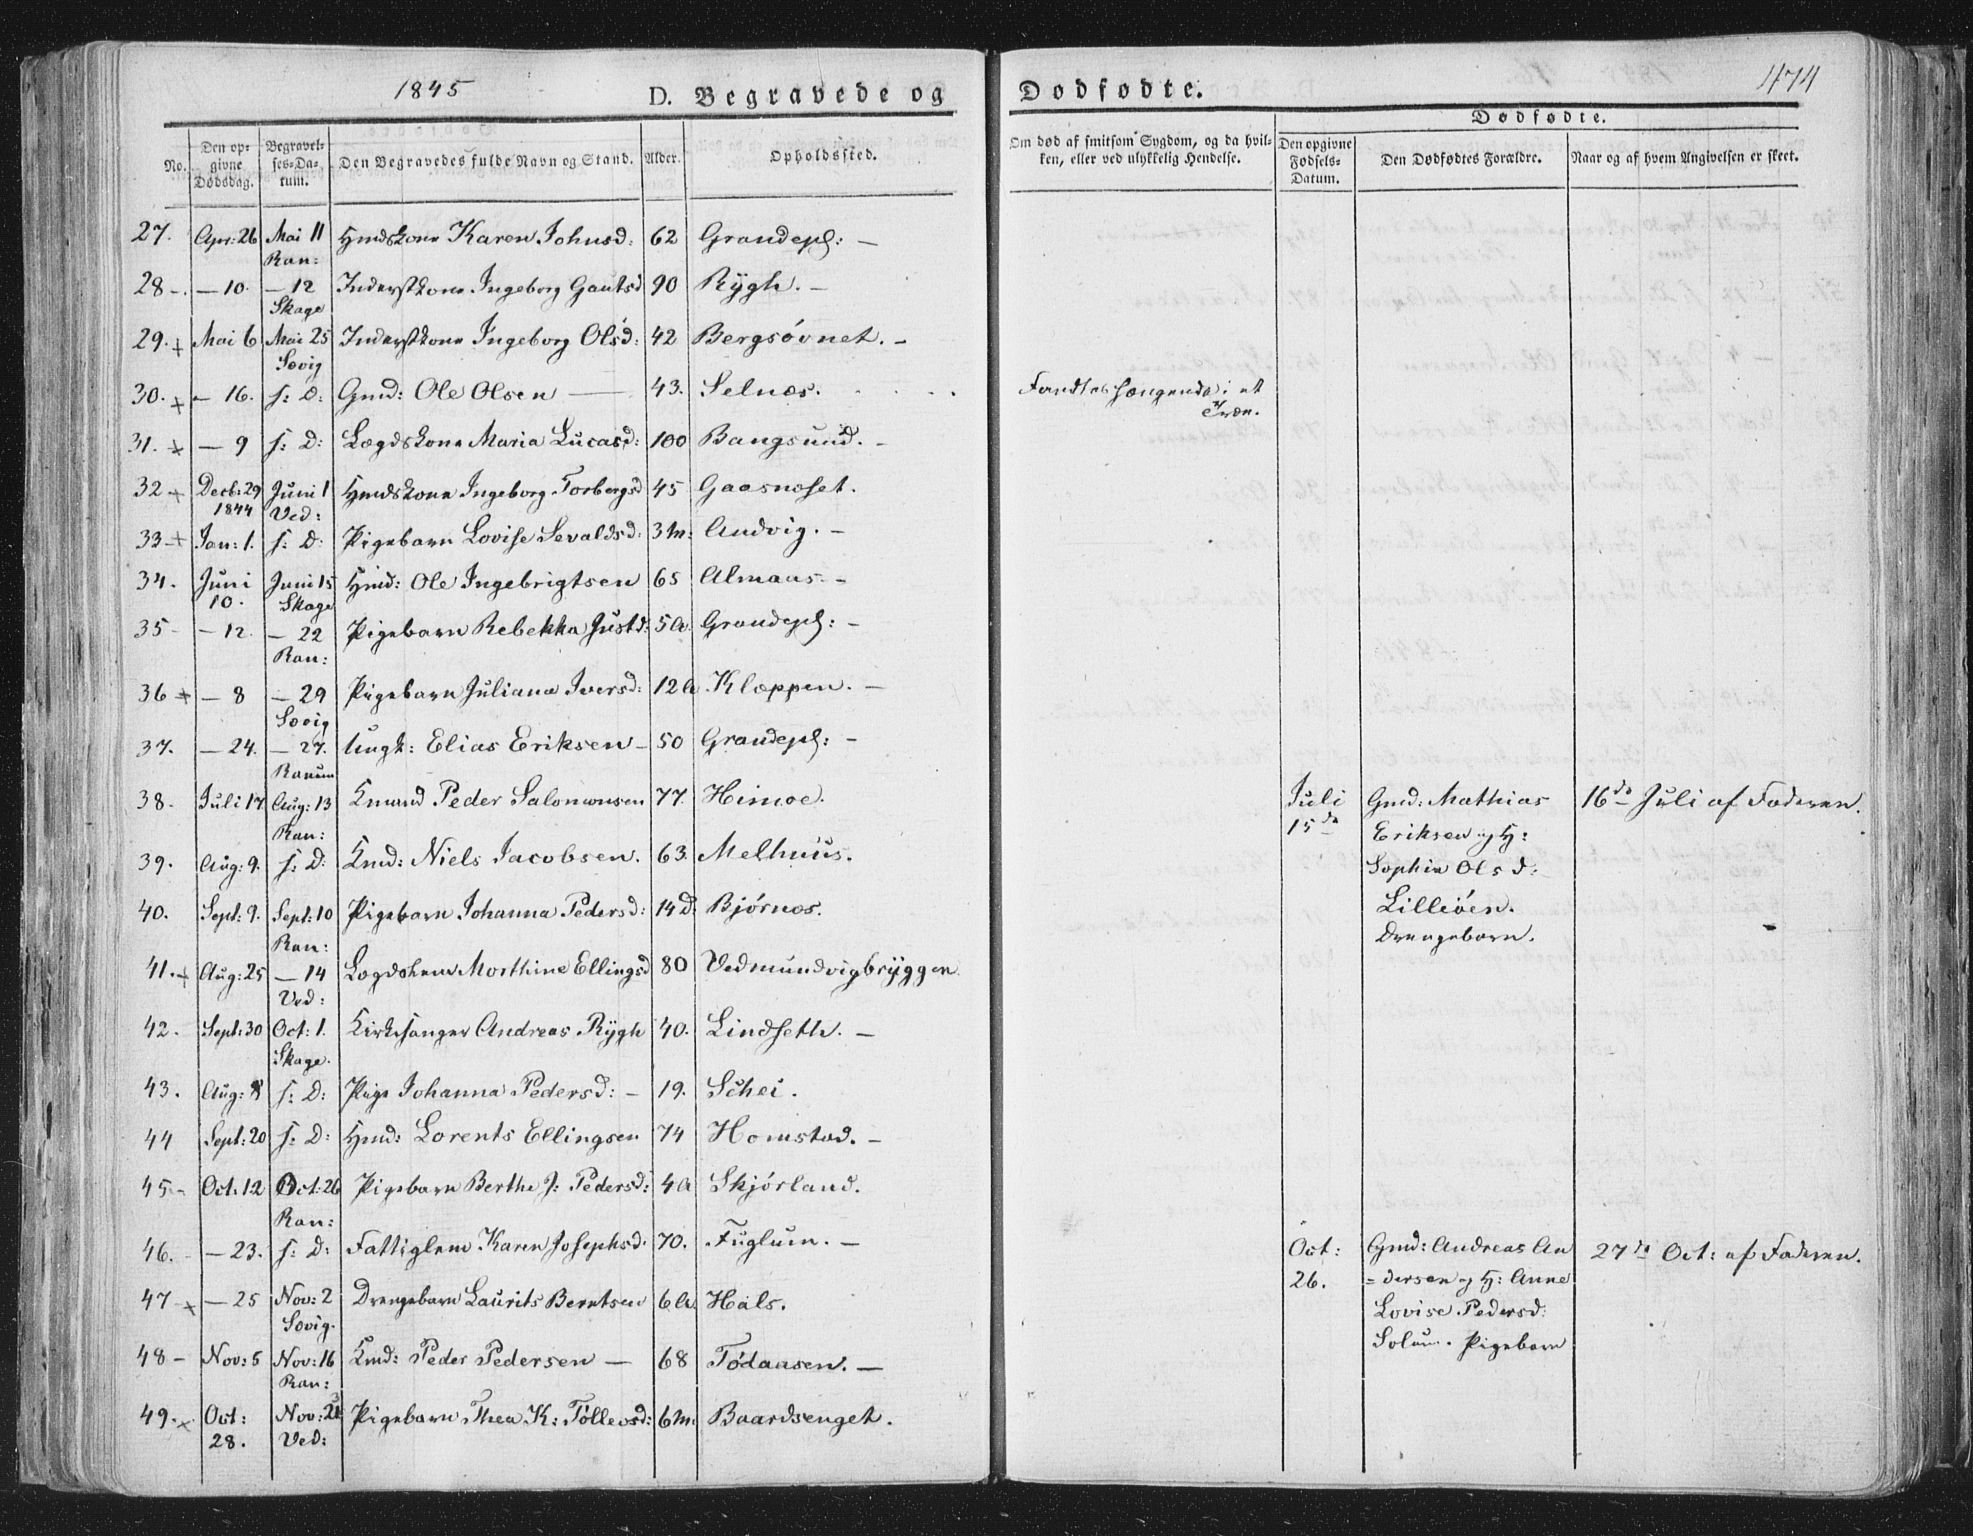 1845 D. Begravede og Dødfødte. 474
No. Den opgivne Dødsdag. Begravelses-Datum. Den Begravedes fulde Navn og Stand. Alder. Opholdssted. Om død af smitsom Sygdom, og da hvilken, eller ved ulykkelig Hendelse.
Dødfødte.
Den opgivne Fødsels-Datum. Den Dødfødtes Forældre. Naar og af hvem Angivelsen er skeet.
27. Apr: 26 Mai 11 Ran: Hmdskone Karen Johnsd: 62 Grandepl: —
28 -. — 10. — 12 Skage Inderstkone Ingeborg Gautsd 90 Rÿgh. —
29. + Mai 6 Mai 25 Sævig Inderstkone Ingeborg Olsd: 42 Bergsøvnet. —
30. + — 16. s: D: Gmd: Ole Olsen — 43. Selnæs. Fandtes hængende i et Træe.
31. + — 9 s: D: Lægdskone Maria Lucasd: 100 Bangsund. —
32 + Decb: 29 1844 Juni 1 Ved: Hmdskone Ingeborg Torbergsd 45 Gaasnæset.
33 + Jan: 1. s: D: Pigebarn Lovise Sevaldsd: 3 M: Andvig. —
34. Juni 10. Juni 15 Skage Hmd: Ole Ingebrigtsen 65 Almaas. —
35 - — 12. — 22 Ran: Pigebarn Rebekka Justd: 5 A. Grandepl: —
36 + — 8 — 29 Sævig Pigebarn Juliana Iversd: 12 A Klæppen. —
37. — 24. — 27. Ranum Ungk: Elias Eriksen — 50 Grandepl: —
38 - Juli 17 Aug: 13 Ran: Kmand Peder Salomonsen 77. Himoe.
39. Aug: 9. s: D: Kmd: Niels Jacobsen. 63. Melhuus.
40. Sept: 9. Sept: 10 Ran: Pigebarn Johanna Pedersd: 14 D: Bjørnes.
41. + Aug: 25 — 14 Ved: Lægdslem Morthine Ellingsd 80 Vedmundvigbrÿggen
42. Sept: 30 Oct: 1. Skage. Kirkesanger Andreas Rÿgh 40. Lindseth. —
43. Aug: 8 s: D: Pige Johanna Pedersd: — 19. Schei.
44 Sept: 20 s: D: Hmd: Lorents Ellingsen 74 Homstad. —
45 - Oct: 12 Oct: 26 Ran: Pigebarn Berthe J: Pedersd: 4 A Skjørland.
46. - — 23. s: D: Fattiglem Karen Josephsd. 70. Fuglum. —
47 + — 25 Nov: 2 Sævig. Drengebarn Laurits Berntsen 6 A. Hals.
48 - Nov: 5 Nov: 16 Ran: Kmd: Peder Pedersen — 68 Tødaasen. —
49. + Oct: 28. Nov: Ved: Pigebarn Thea K: Tøllevsd: 6 M. Baardsenget.
Juli 15de Gmd: Mathias 16de Juli af Faderen.
Eriksen og H:
Sophia Olsd:
Lilleøen.
Drengebarn.
Oct: 26. Gmd: Andreas An 27de Oct: af Faderen.
= dersen og H: Anne
Lovise Pedersd:
Solum. Pigebarn